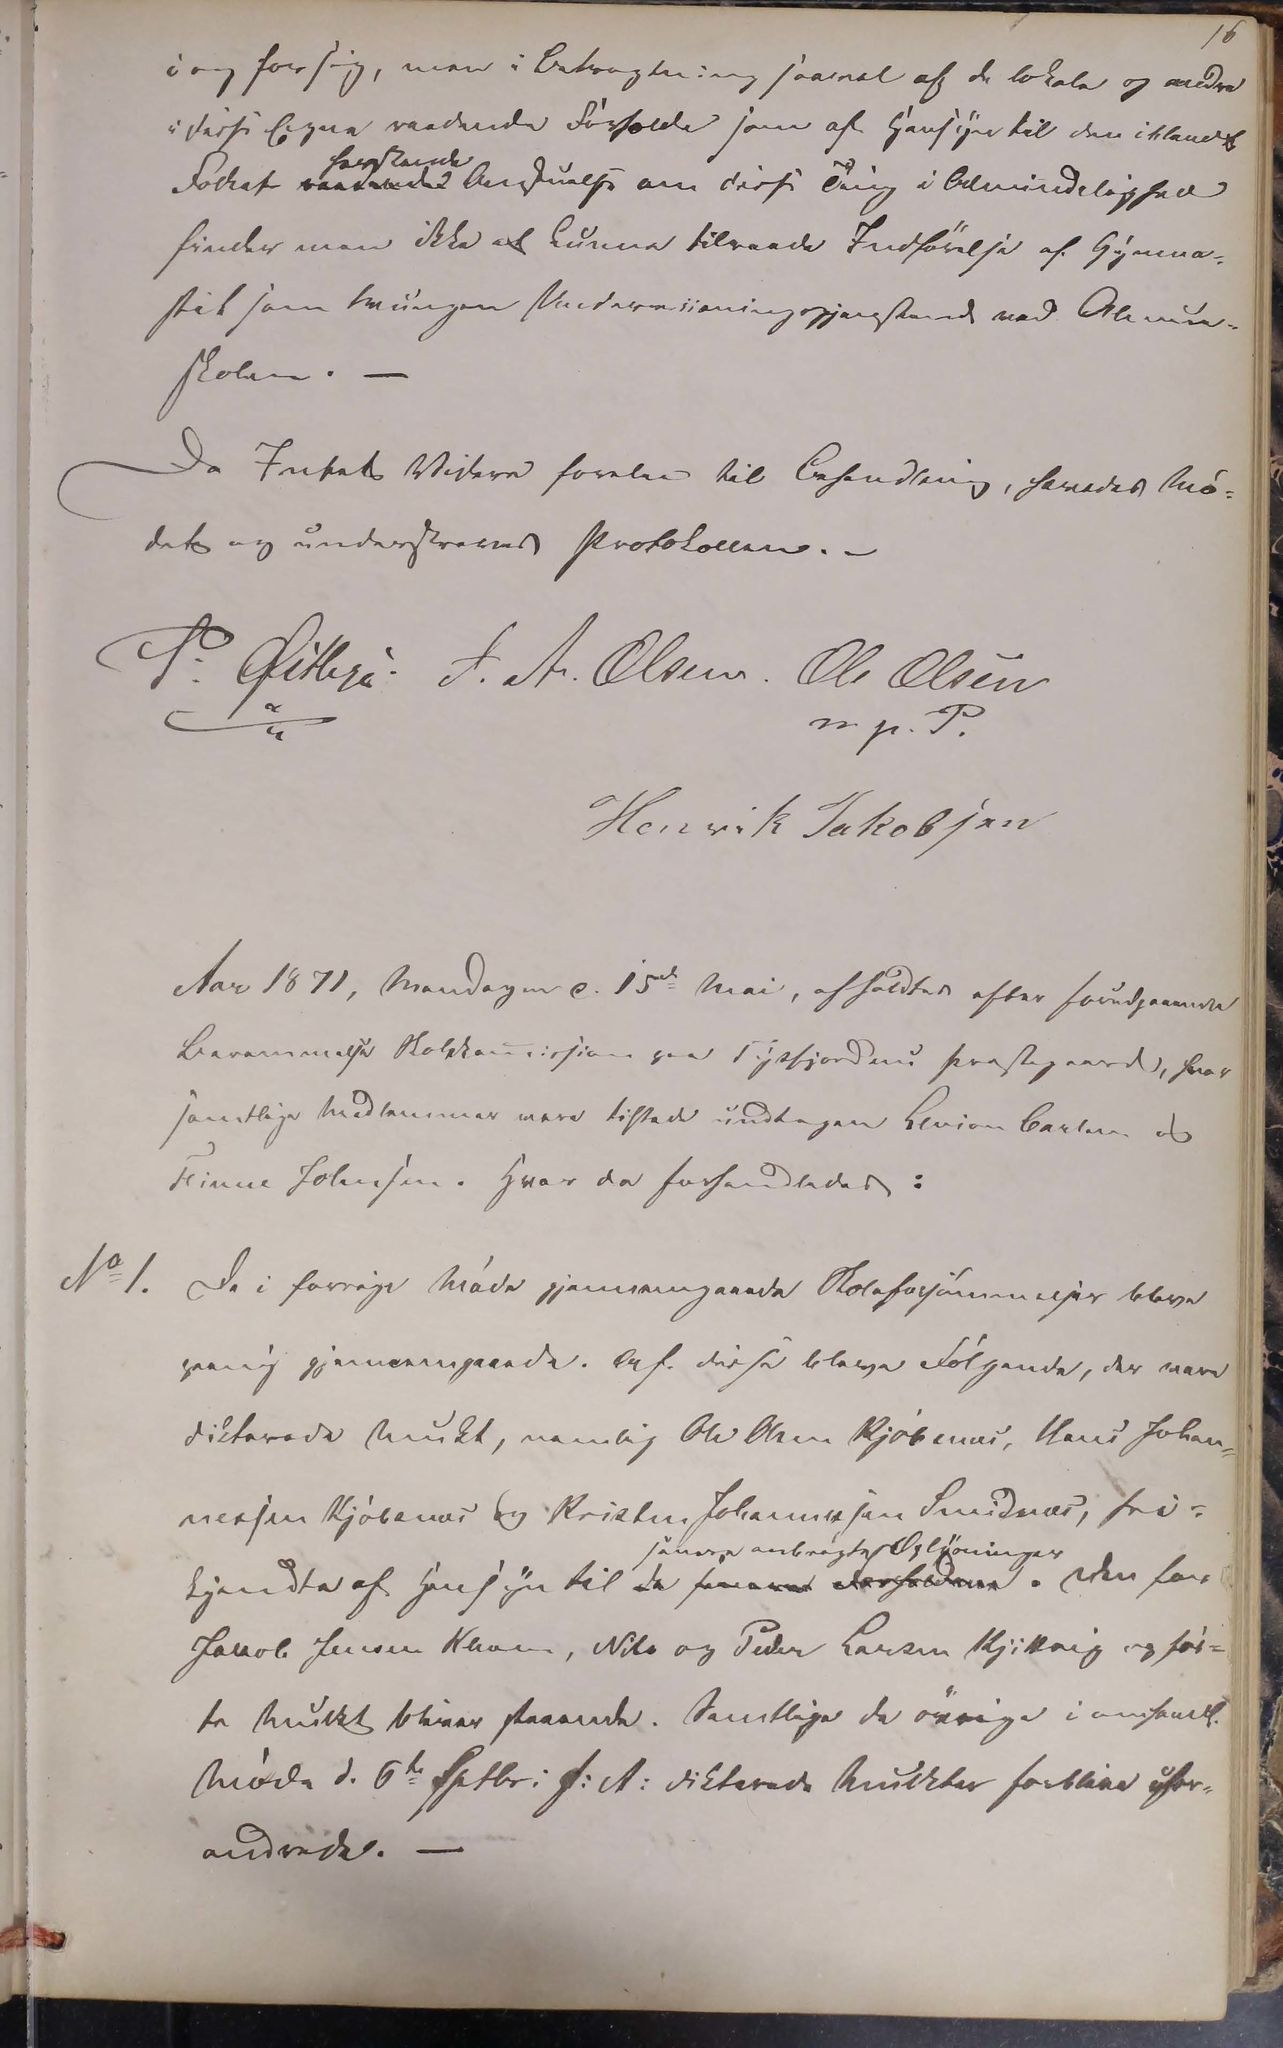 16
i og for sig, men i Betragtning saavel af de lokale og andre
i disse Egne raadende Forholde som af Hensyn til den iblandt
herskende
Folket raadende Anskuelse om disse Ting i Almindelighed
finder man ikke at kunne tilraade Indførelse af Gymna-
stik som tvungen Undervisningsgjenstand ved Almue-
skolen. —
Da Intet Videre forelaa til Behandling, hævedes Mö-
det og underskreves Protokollen. —
P. F. A. Olsen. Ole Olsen
m. p. P.
Henrik Jakobsen
Aar 1871, Mandagen d. 15de Mai, afholdtes efter forudgaaende
Berammelse Skolekommission paa Tysfjordens Prestegaard, hvor
samtlige Medlemmer vare tilstede undtagen Carlsen og
Finne Johnsen. Hvor da forhandledes:
No 1. De i forrige Möde gjennemgaaede Skoleforsömmelser bleve
paany gjennemgaaede. Af disse bleve Fölgende, der vare
dikterede Mulkt, nemlig Ole Olsen Kjöbsnæs, Hans Johan-
nessen Kjöbsnæs og Kristen Johannessen Smidnæs, fri-
senere anbragte Oplysninger
kjendte af Hensyn til de . Den for
Jakob Jensen , Nils og Peder Larsen Kjikvig opför-
te Mulkt bliver staaende. Samtlige de övrige i omhandl.
Möde d. 6te Septbr: f: A: dikterede Mulkter forblive ufor-
andrede. —